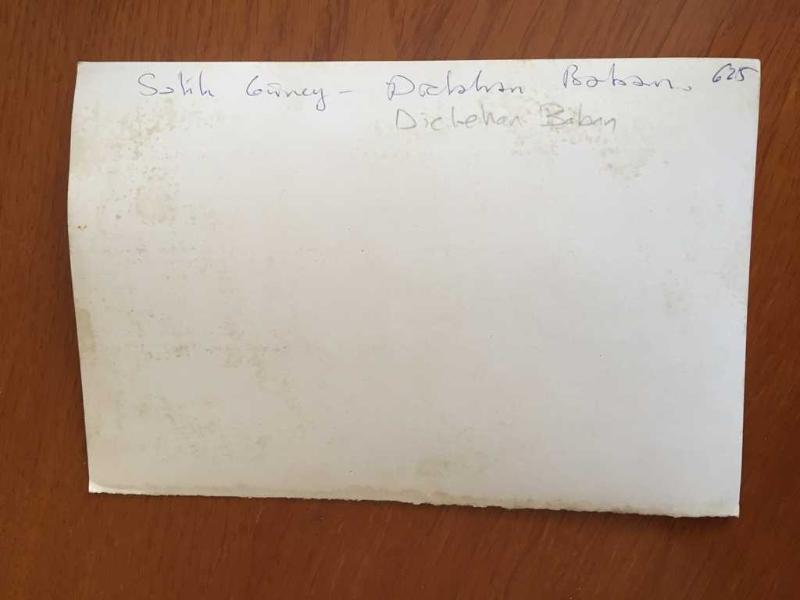 Salih Güney - Diclehan Baban. 625
Diclehan Baban